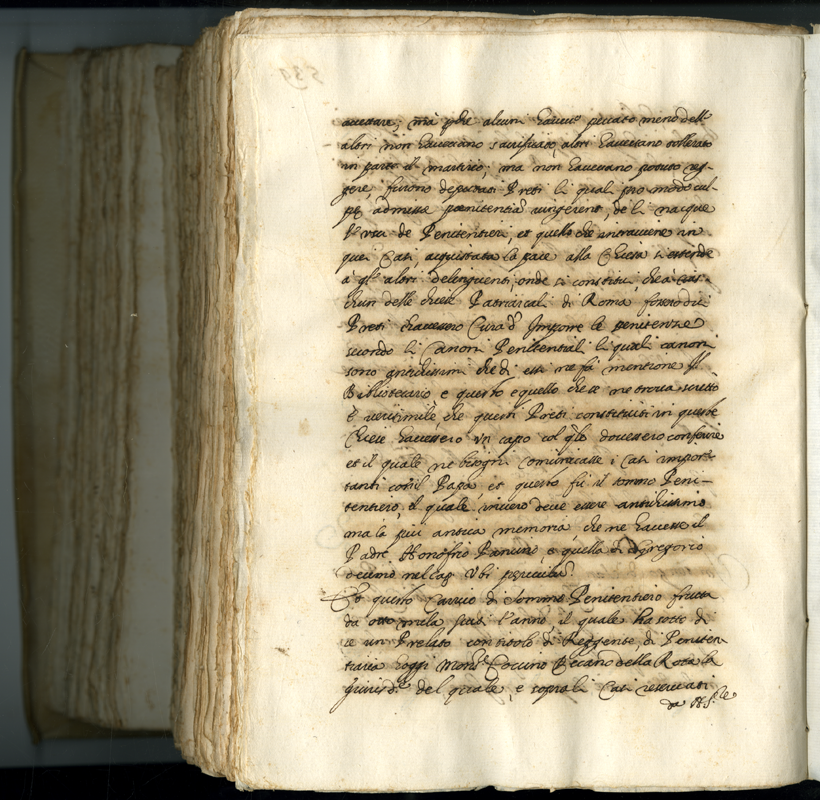 accettare; mà pche alcuni haveuo peccato meno dell'
altri non havevano sacrificato, altri havevano tollerato
in parte il martirio; ma non havevano potuto reg-
gere, furono deputati Preti li quali pro modo cul-
pę admissę pœnitentiā iungerent, de li nacque
l'vso de Penitentieri, et quello che intrauiene in
quei Casi, acquistata la pace alla Chiesa si estende
à gl'altri delinquenti, onde si constituì, che à cias-
chun delle chiese Patriarcali di Roma fossero dei
Preti c'havessero Cura d'Imporre le penitenze
secondo li Canoni Penitentiali li quali canoni
sono antichissimi che di essi ne fà mentione il
Bibliotecario, e questo è quello che se ne trova scritto
È verisimile, che questi Preti constituiti in queste
Chiese havessero vn capo col qle dovessero conferire
et il quale ne bisogni comunicasse i Casi impor-
tanti con il Papa, et questo fù il sommo Peni-
tentiero, il quale invero deve essere antichissimo
ma la più antica memoria che ne havesse il
Padre Honofrio Panvino, è quella di Gregorio
decimo nel cap. Vbi periculū.
Et questo Carico di Sommo Penitentiero frutta
da otto mila scudi l'anno, il quale ha sotto di
se un Prelato con titolo di Reggente di Peniten-
tiaria hoggi Mons.r Coccino Decano della Rota la
Giurisd.e del quale, e sopra li Casi reservati
da S.